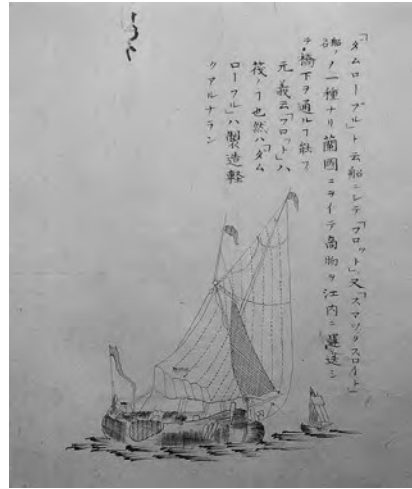 「ダムローブル」ト云船ニシテ「フロット」又「スマックスロイト」
船ノ一種ナリ蘭國ニヲイテ商物ヲ江内ニ運送シ
テ橋下ヲ通ルヿ
元義云「フロット」ハ
筏ノヿ也然ハ「ダム
ローフル」ハ製造軽
クアルナラン